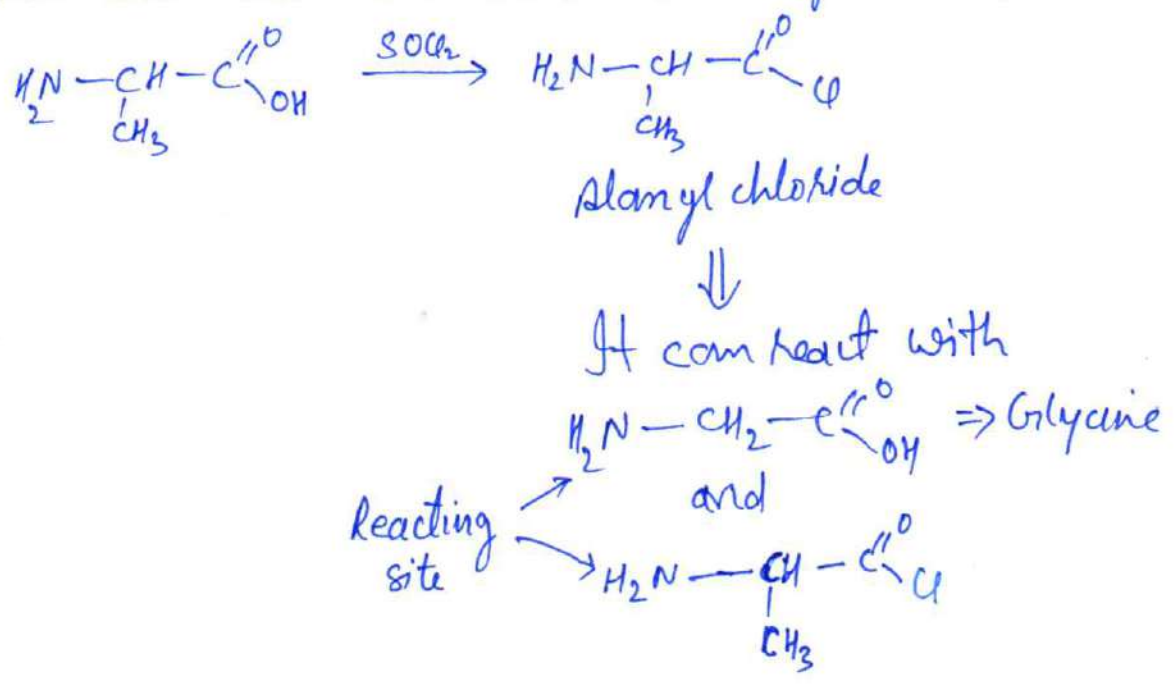 H₂N – CH – C =O OH SOCl₂ → H₂N – CH – C =O Cl
CH₃ CH₃
Alanyl chloride
⇓
It can react with
H₂N – CH₂ – C =O OH ⇒ Glycine
and
Reacting
site
H₂N – CH – C =O Cl
CH₃